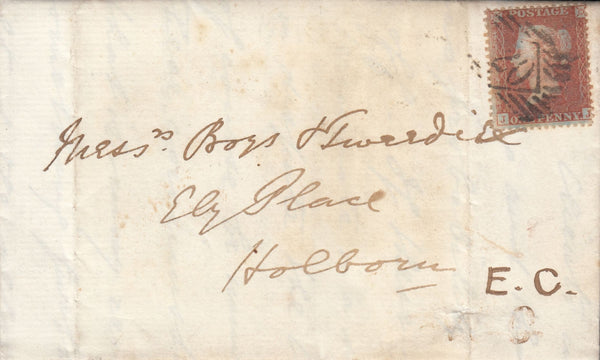 POSTAGE
ONE PENNY
Mess.rs Boys & Tweedie
Ely Place
Holborn
E.C.